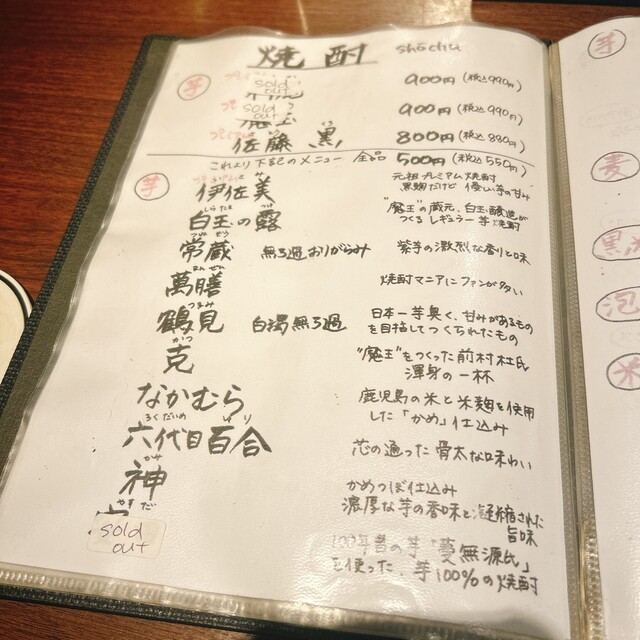 焼酎 shōchu
芋
sold out 900円 (税込990円)
sold out 900円 (税込990円)
佐藤 黒 800円 (税込880円)
これより下記のメニュー 全品 500円 (税込550円)
芋
伊佐美 元祖プレミアム焼酎
黒麹だけど 優しい芋の甘み
しらたま つゆ
白玉の露 "魔王"の蔵元、白玉醸造が
つくるレギュラー芋焼酎
常蔵 無ろ過おりがらみ 紫芋の激烈な香りと味
まんぜん
萬膳 焼酎マニアにファンが多い
つるみ
鶴見 白濁無ろ過 日本一芋臭く、甘みがあるもの
を目指してつくられたもの
かつ
克 "魔王"をつくった前村杜氏
渾身の一杯
なかむら 鹿児島の米と米麹を使用
した「かめ」仕込み
ろくだいめ ゆり
六代目百合 芯の通った骨太な味わい
かみ
神 かめつぼ仕込み
濃厚な芋の香味と凝縮された
旨味
やすだ
sold out 100年昔の芋「蔓無源氏」
を使った、芋100%の焼酎
芋
麦
黒
泡
米